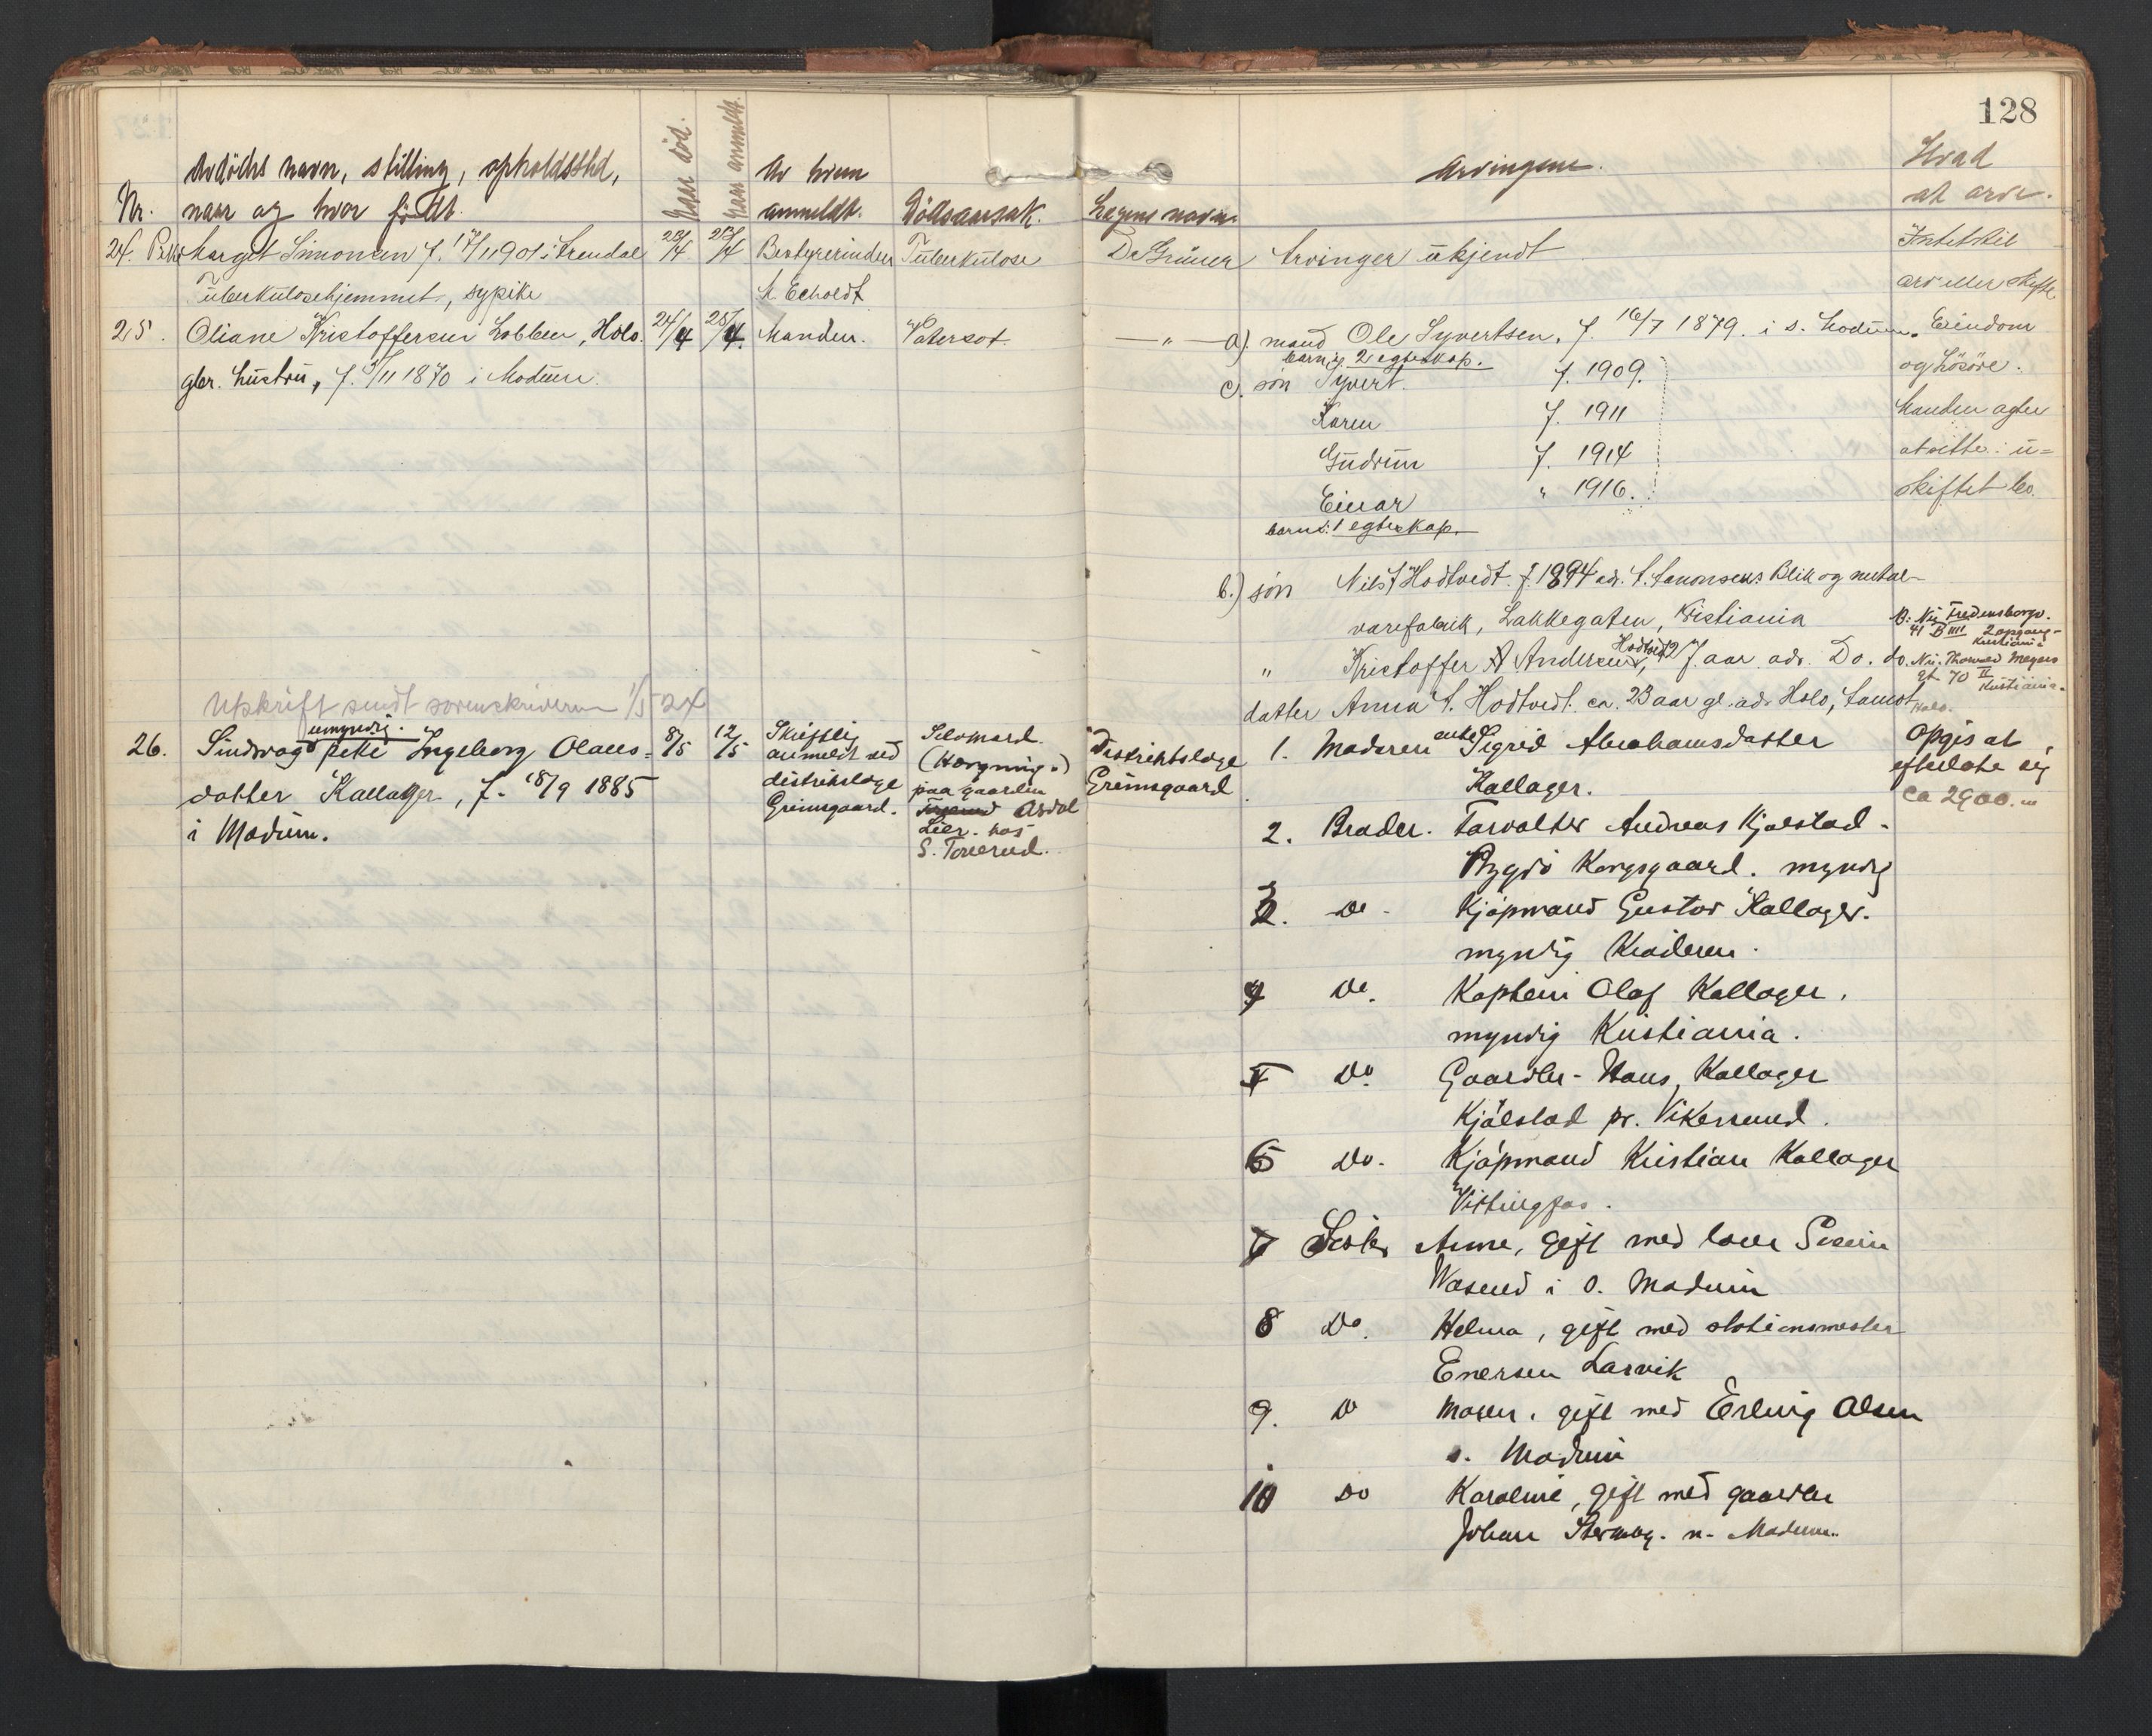 128
Avdödes navn, stilling, opholdssted,
Nr. naar og hvor födt.
Naar död.
Naar anmeldt.
Av hvem
anmeldt.
Dödsaarsak.
Lægens navn.
Arvingene.
Hvad
at arve.
24. Margit Simonsen f. 17/1 1901 i Arendal
Tuberkulosehjemmet, sypike
23/4
25/4
Bestyrerinden
M. Echoldt
Tuberkulose
Dr Grüner
Arvinger ukjendt
Intet til
arv eller skifte
25. Oliane Kristoffersen Lobben, Holo.
gbr. hustru, f. 5/11 1870 i Modum.
24/4
25/4.
Manden.
Vatersot.
— " —
a). mand Ole Syvertsen. f. 16/7 1879. i s. Modum.
barn i 2 egteskap.
c. søn Syvert. f. 1909.
Karen f. 1911
Gudrun f. 1914
Einar " 1916.
barn i 1 egteskap.
b.) søn Nils Hodtvedt. f. 1894 ad. Blik og metal-
varefabrik, Lakkegaten, Kristiania
" Kristoffer A Andersen, Hodtvedt 27 aar adr. Do. do.
datter Anna Hodtvedt. ca. 23 aar gl. adr. Holo, Åmot
Eiendom
og Lösöre.
Manden agter
at sitte i u=
skiftet bo.
N: Ny Fredensborgv.
41 B IIII 2 opgang-
Kristiania
Nu. Thorvald Meyers
gt 70 II
Kristiania.
Holo.
Utskrift sendt sorenskriveren 1/5 24
26. Sindsvag umyndig. pike Ingeborg Olaus-
datter Kallager, f. 18/9 1885
i Modum.
8/5
12/5
Skriftlig
anmeldt ved
distriktslæge
Grimsgaard.
Selvmord.
(Hængning.)
paa gaarden
Asdøl
Lier. hos
S. Tonerud.
Distriktslæge
Grimsgaard
1. Moderen enke Sigrid Abrahamsdatter
Kallager.
2. Broder. Forvalter Andreas Kjølstad.
Bygdø Kongsgaard. myndig
3. Do. Kjöpmand Gustav Kallager.
myndig Krøderen.
4 Do. Kaptein Olaf Kallager.
myndig Kristiania.
5 Do. Gaardbr. Hans Kallager
Kjölstad pr. Vikersund.
6 Do. Kjöpmand Kristian Kallager
Vittingfos.
7 Søster Anne, gift med
i s. Modum
8 Do. Helma, gift med stationsmester
Enersen Larvik
9. Do Maren, gift med Erling Olsen
s. Modum
10 Do Karoline, gift med gaardbr
Johan n. Modum.
Opgis at
efterlate sig
ca 2900.